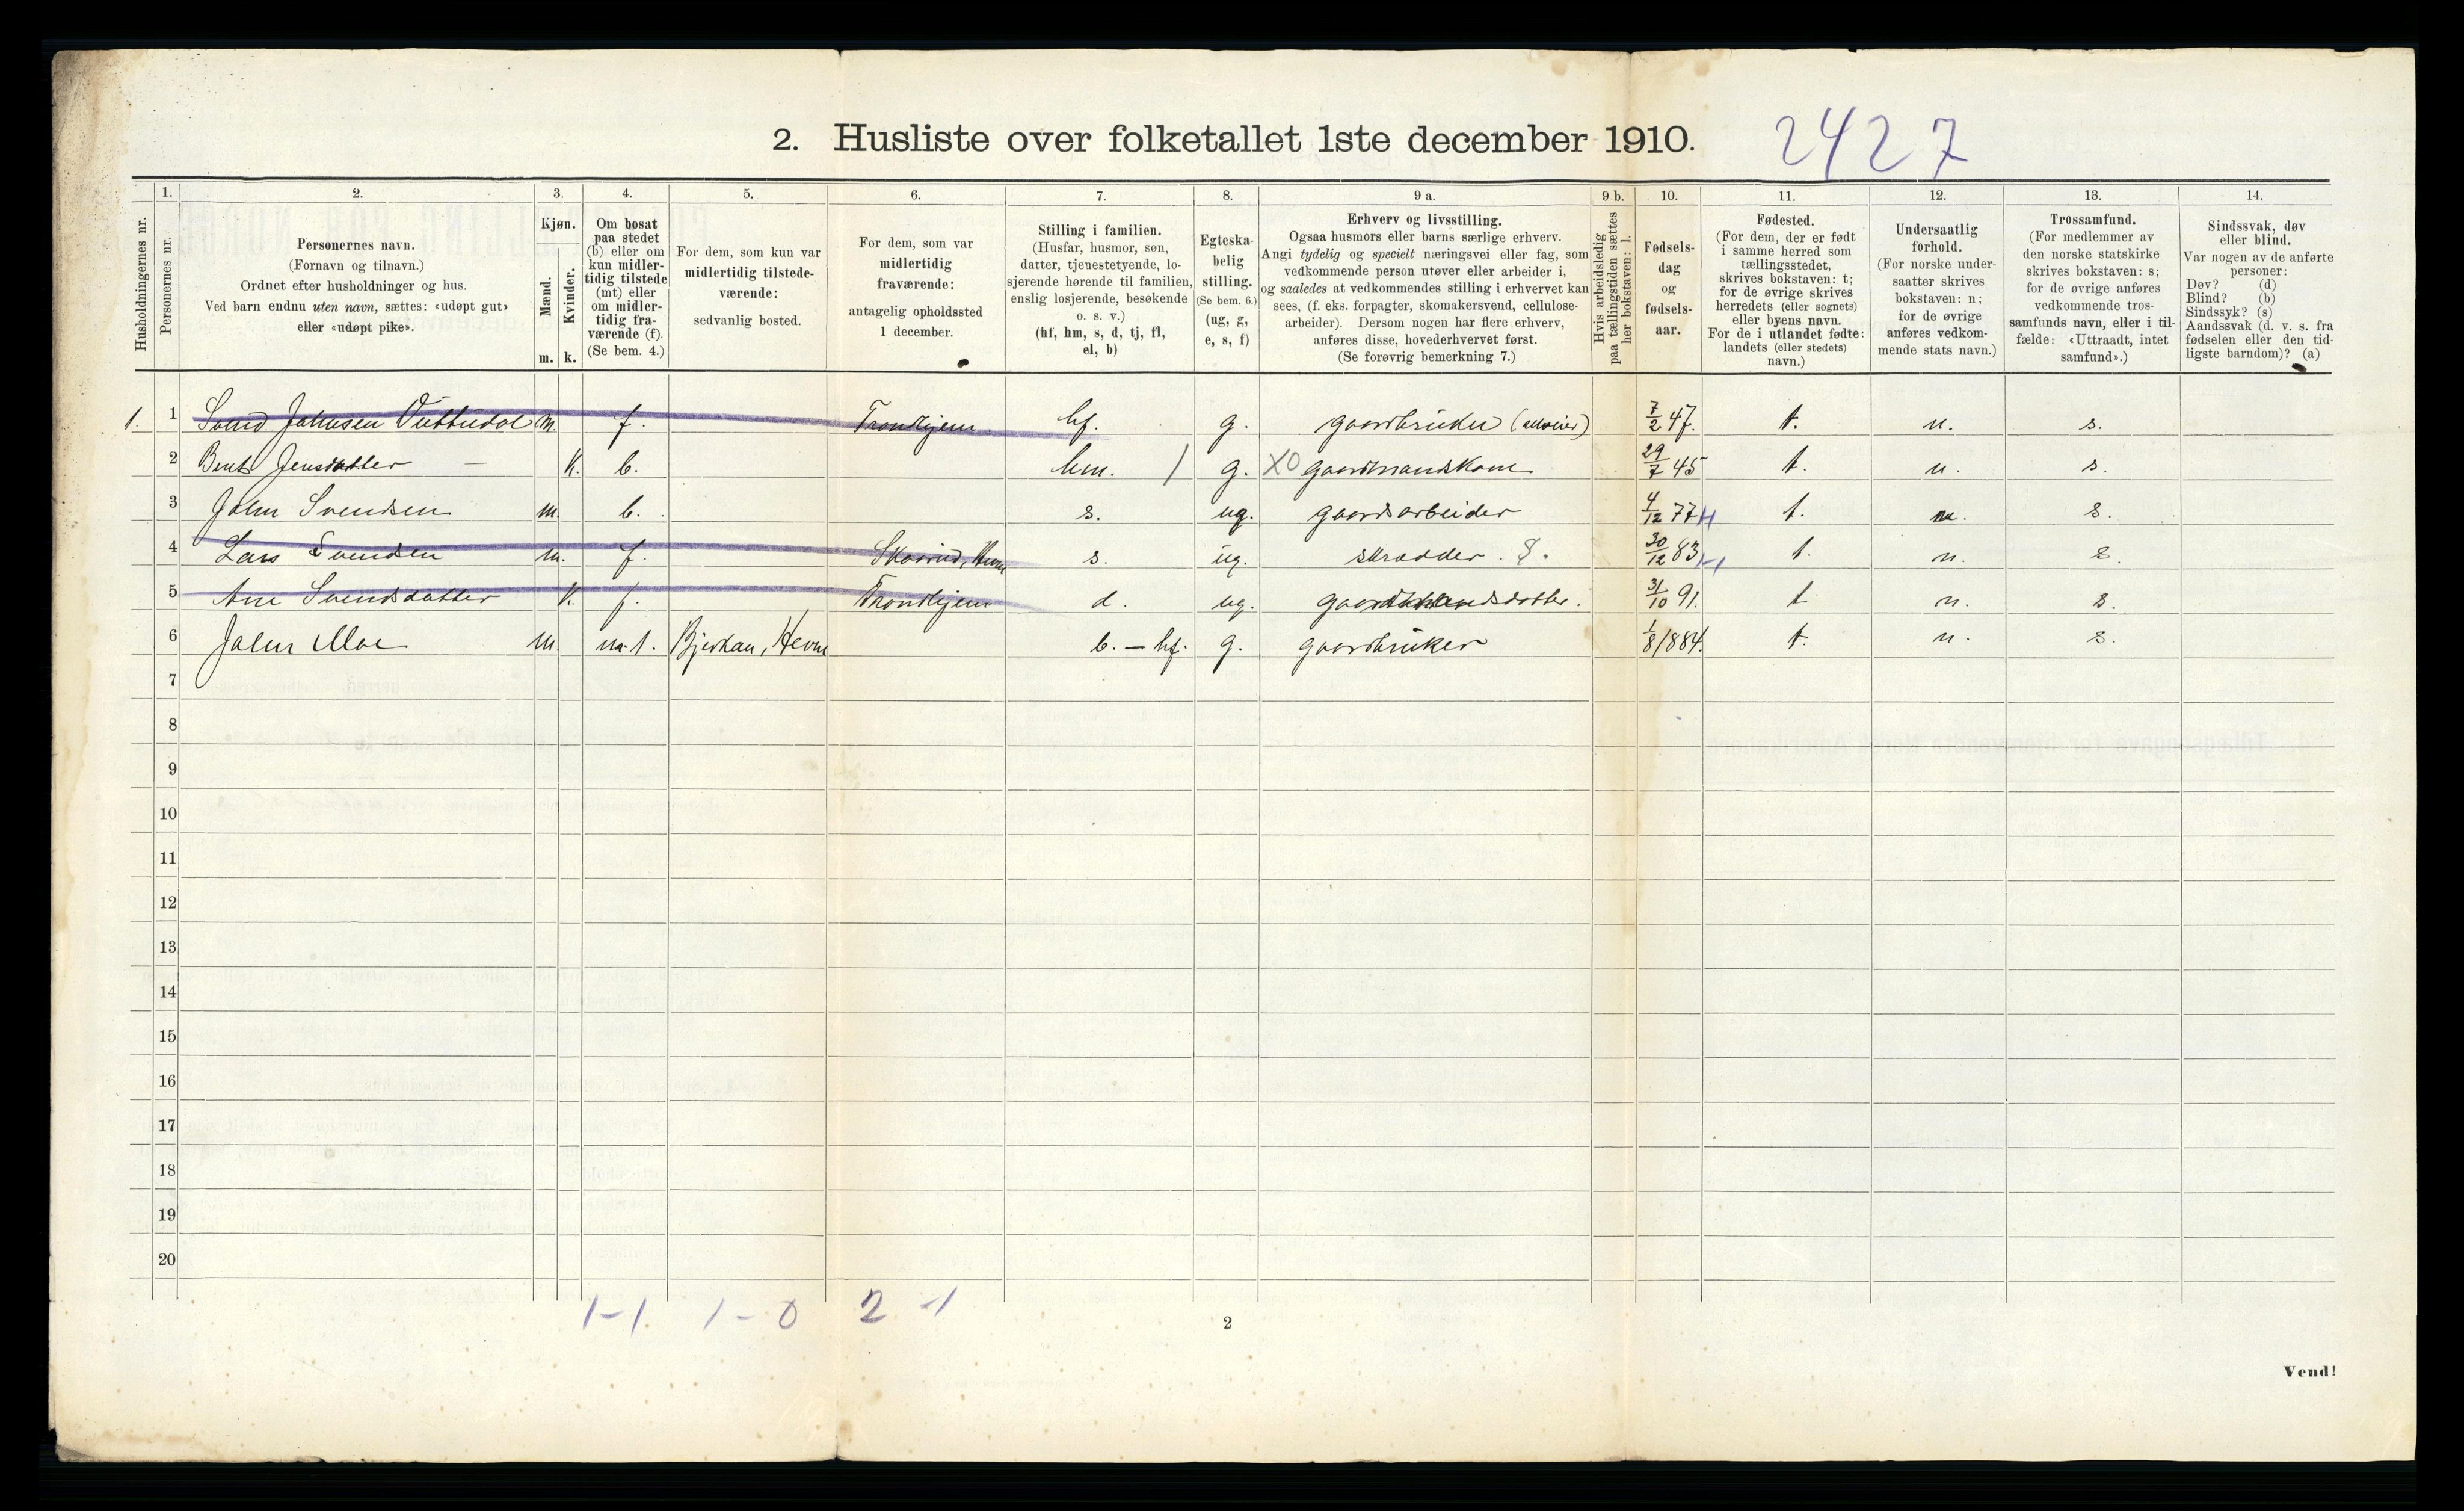 2. Husliste over folketallet 1ste december 1910.
2427
Husholdningernes nr.
1.
Personernes nr.
2.
Personernes navn.
(Fornavn og tilnavn.)
Ordnet efter husholdninger og hus.
Ved barn endnu uten navn, sættes: «udøpt gut»
eller «udøpt pike».
3.
Kjøn.
Mænd.
Kvinder.
m. k.
4.
Om bosat
paa stedet
(b) eller om
kun midler-
tidig tilstede
(mt) eller
om midler-
tidig fra-
værende (f).
(Se bem. 4.)
5.
For dem, som kun var
midlertidig tilstede-
værende:
sedvanlig bosted.
6.
For dem, som var
midlertidig
fraværende:
antagelig opholdssted
1 december.
7.
Stilling i familien.
(Husfar, husmor, søn,
datter, tjenestetyende, lo-
sjerende hørende til familien,
enslig losjerende, besøkende
o. s. v.)
(hf, hm, s, d, tj, fl,
el, b)
8.
Egteska-
belig
stilling.
(Se bem. 6.)
(ug, g,
e, s, f)
9 a.
Erhverv og livsstilling.
Ogsaa husmors eller barns særlige erhverv.
Angi tydelig og specielt næringsvei eller fag, som
vedkommende person utøver eller arbeider i,
og saaledes at vedkommendes stilling i erhvervet kan
sees, (f. eks. forpagter, skomakersvend, cellulose-
arbeider). Dersom nogen har flere erhverv,
anføres disse, hovederhvervet først.
(Se forøvrig bemerkning 7.)
9 b.
Hvis arbeidsledig
paa tællingstiden sættes
her bokstaven: l.
10.
Fødsels-
dag
og
fødsels-
aar.
11.
Fødested.
(For dem, der er født
i samme herred som
tællingsstedet,
skrives bokstaven: t;
for de øvrige skrives
herredets (eller sognets)
eller byens navn.
For de i utlandet fødte:
landets (eller stedets)
navn.)
12.
Undersaatlig
forhold.
(For norske under-
saatter skrives
bokstaven: n;
for de øvrige
anføres vedkom-
mende stats navn.)
13.
Trossamfund.
(For medlemmer av
den norske statskirke
skrives bokstaven: s;
for de øvrige anføres
vedkommende tros-
samfunds navn, eller i til-
fælde: «Uttraadt, intet
samfund».)
14.
Sindssvak, døv
eller blind.
Var nogen av de anførte
personer:
Døv? (d)
Blind? (b)
Sindssyk? (s)
Aandssvak (d. v. s. fra
fødselen eller den tid-
ligste barndom)? (a)
1. 1 Svend Johnsen m. f. Trondhjem hf. g. gaardbruker (selveier) 7/2 47. t. n. s.
2 Berit Jensdatter — k. b. hm. / g. XO gaardmandskone 29/7 45 t. n. s.
3 John Svendsen m. b. s. ug. gaardsarbeider 4/12 77 t. n. s.
4 Lars Svendsen m. f. Hevne s. ug. skrædder. 30/12 83 t. n. s.
5 Ane Svendsdatter k. f. Trondhjem d. ug. 31/10 91. t n. s.
6 John Moe m. mt. Bjerkan, Hevne b. — hf. g. gaardbruker 1/8 1884. t. n. s.
7
8
9
10
11
12
13
14
15
16
17
18
19
20
1-1. 1-0 2-1
2
Vend!